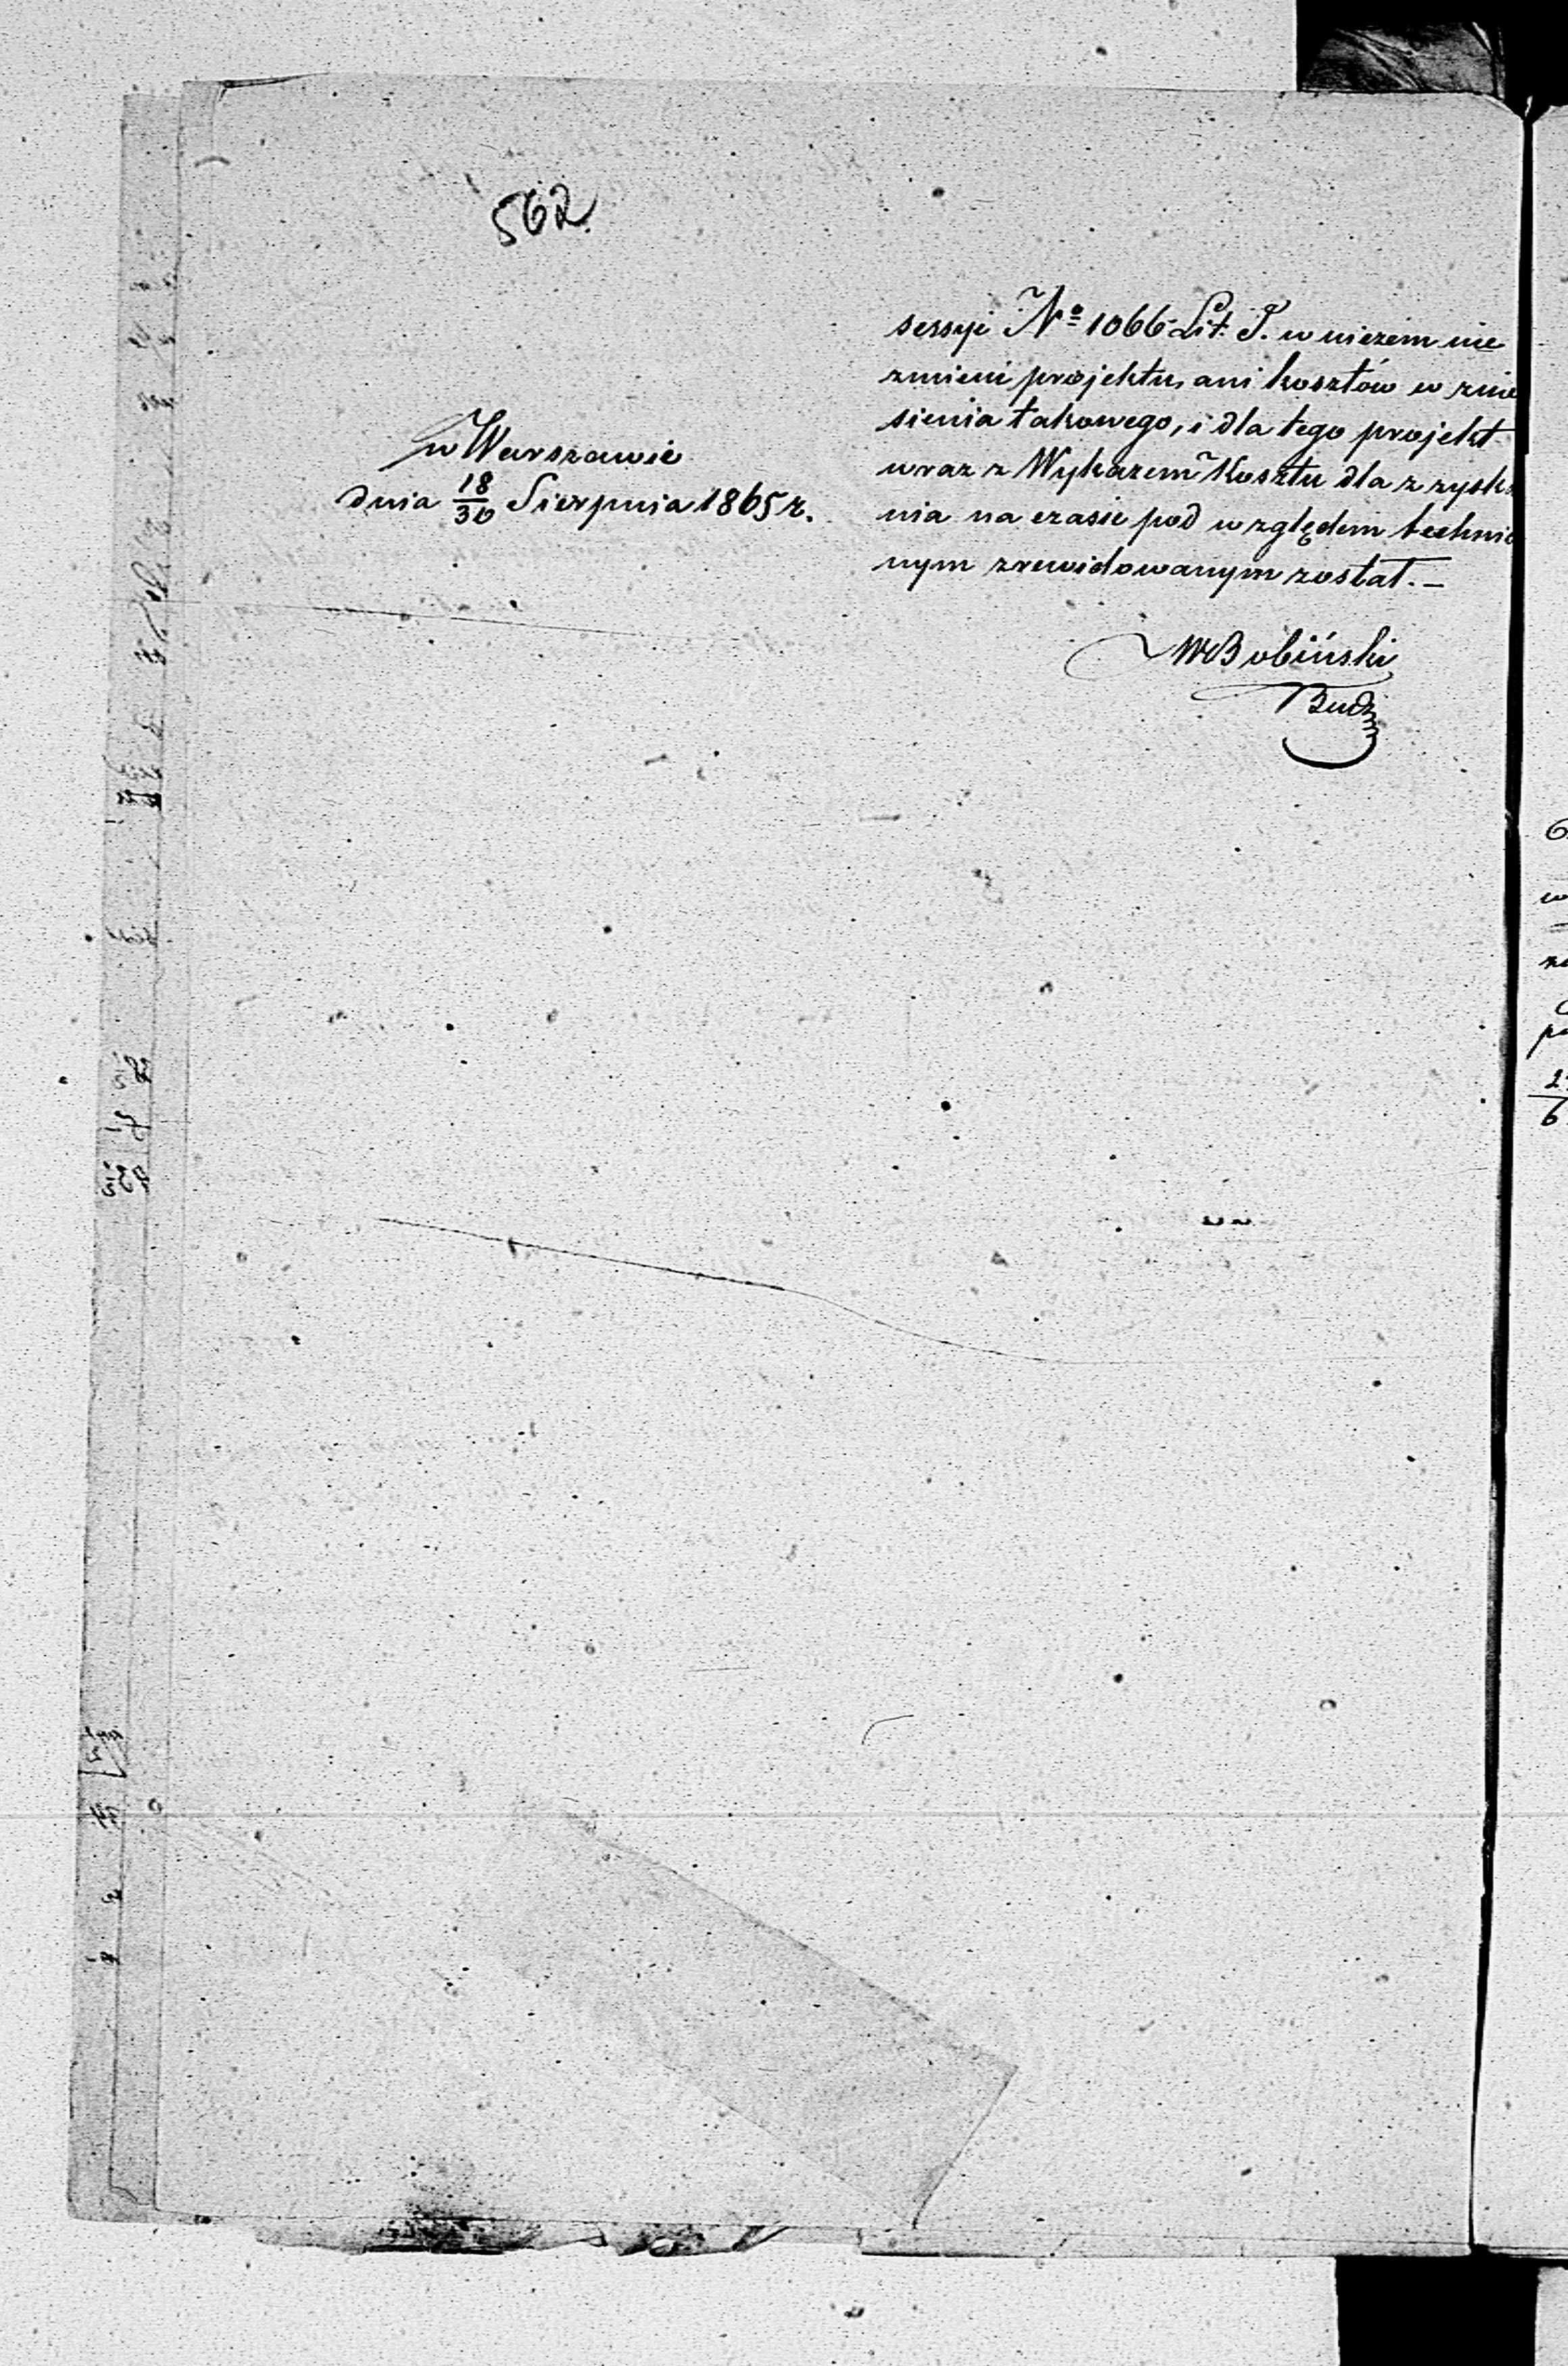 562.
w Warszawie
dnia 18/30 Sierpnia 1865 r.
sessyi Nº 1066 Lit: T. w niczem nie
zmieni projektu, ani kosztów w znie
sienia takowego, i dla tego projekt
wraz z Wykazem Kosztu dla zzyska
nia na czasie pod względem technicz
nym zrewidowanym został. —
WBobiński
Bud: